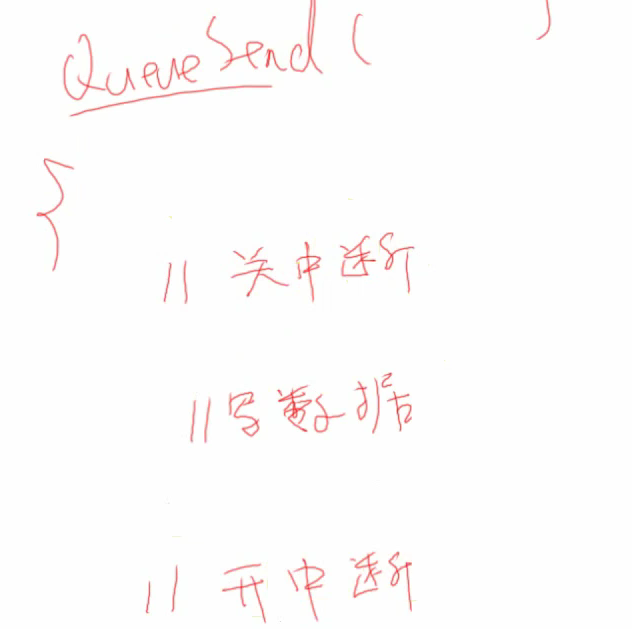 QueueSend (      )
{
// 关中断
// 写数据
// 开中断